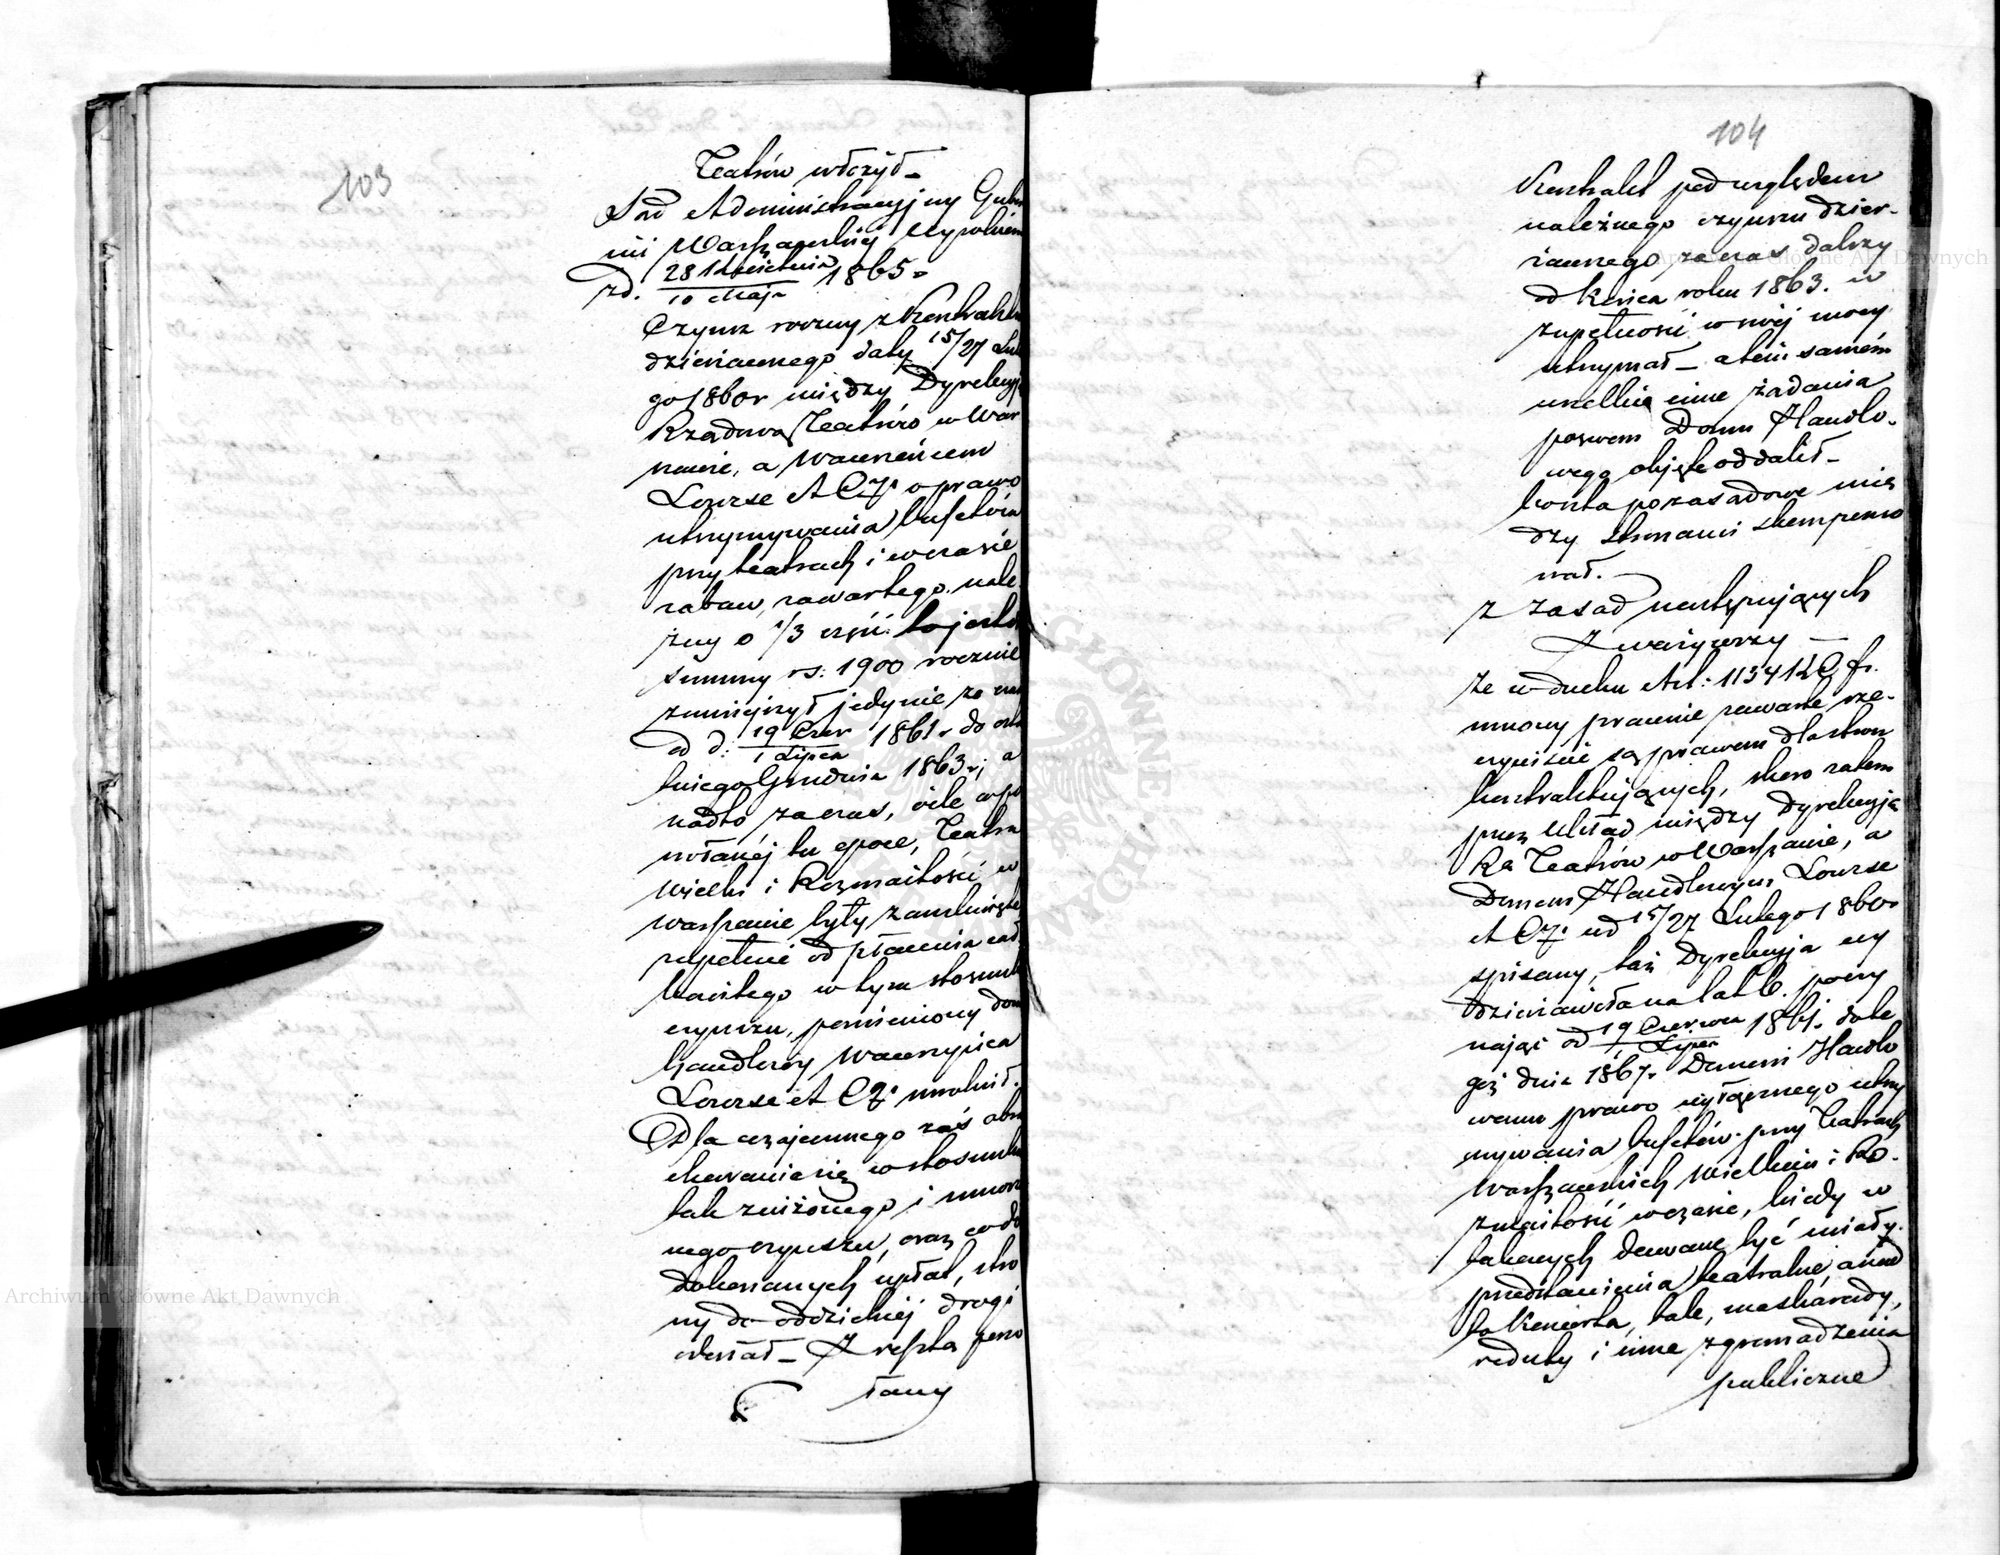 103
Teatrów włożył –
Sąd Administracyjny Guber
nii Warszawskiéj wyrokiem
zd. 28 Kwietnia / 10 Maja 1865 –
Czynsz roczny z Kontraktu
dzierżawnego daty 15/27 Lute
go 1860 r między Dyrekcyą
Rządową Teatrów w War
szawie, a Wawrzeńcem
Lourse et C. o prawo
utrzymywania bufetów
przy teatrach i w czasie
zabaw, zawartego, nale
żny o 1/3 część to jest do
summy rs: 1900 rocznie
zmniejszył jedynie za czas
od d: 19 Czer / 1 Lipca 1861 r do osta
tniego Grudnia 1863 r; a
nadto za czas, ile w po
wołanéj tu epoce, Teatra
Wielki i Rozmaitości w
Warszawie były zamknięte
zupełnie od płacenia cał
kowitego w tym stosunku
czynszu, pomieniony dom
handlowy Wawrzyńca
Lourse et C. uwolnił.
Dla wzajemnego zaś obra
chowania się w stosunku
tak zniżonego i umorzo
nego czynszu, oraz co do
dokonanych wpłat, stro
ny do oddzielnéj drogi
odesłał – Z resztą powo
łany
104
Kontrakt pod względem
należnego czynszu dzier-
żawnego za czas dalszy
od końca roku 1863. w
zupełności w swéj mocy
utrzymał – a tem samém
wszelkie inne żądania
pozwem Domu Handlo-
wego objęte oddalił –
koszta pozasądowe mię
dzy stronami skompenso
wał. –
z zasad następujących
Zważywszy –
że w duchu Art: 1134 K C fr.
umowy prawnie zawarte rze-
czywiście są prawem dla stron
kontraktujących, skoro zatem
przez układ między Dyrekcyją
Rą Teatrów w Warszawie, a
Domem Handlowym Lourse
et C. od 15/27 Lutego 1860 r
spisany, taż Dyrekcyja wy
dzierżawiła na lat 6. poczy
nając od 19 Czerwca / 1 Lipca 1861. do te
goż dnia 1867 r Domowi Handlo
wemu prawo wyłącznego utrzy
mywania bufetów przy Teatrach
Warszawskich Wielkim i Ro-
zmaitości w czasie, kiedy w
takowych dawane być miały
przedstawienia teatralne, a nad
to Koncerta, bale, maskarady,
reduty i inne zgromadzenia
publiczne
Archiwum Główne Akt Dawnych
Archiwum Główne Akt Dawnych